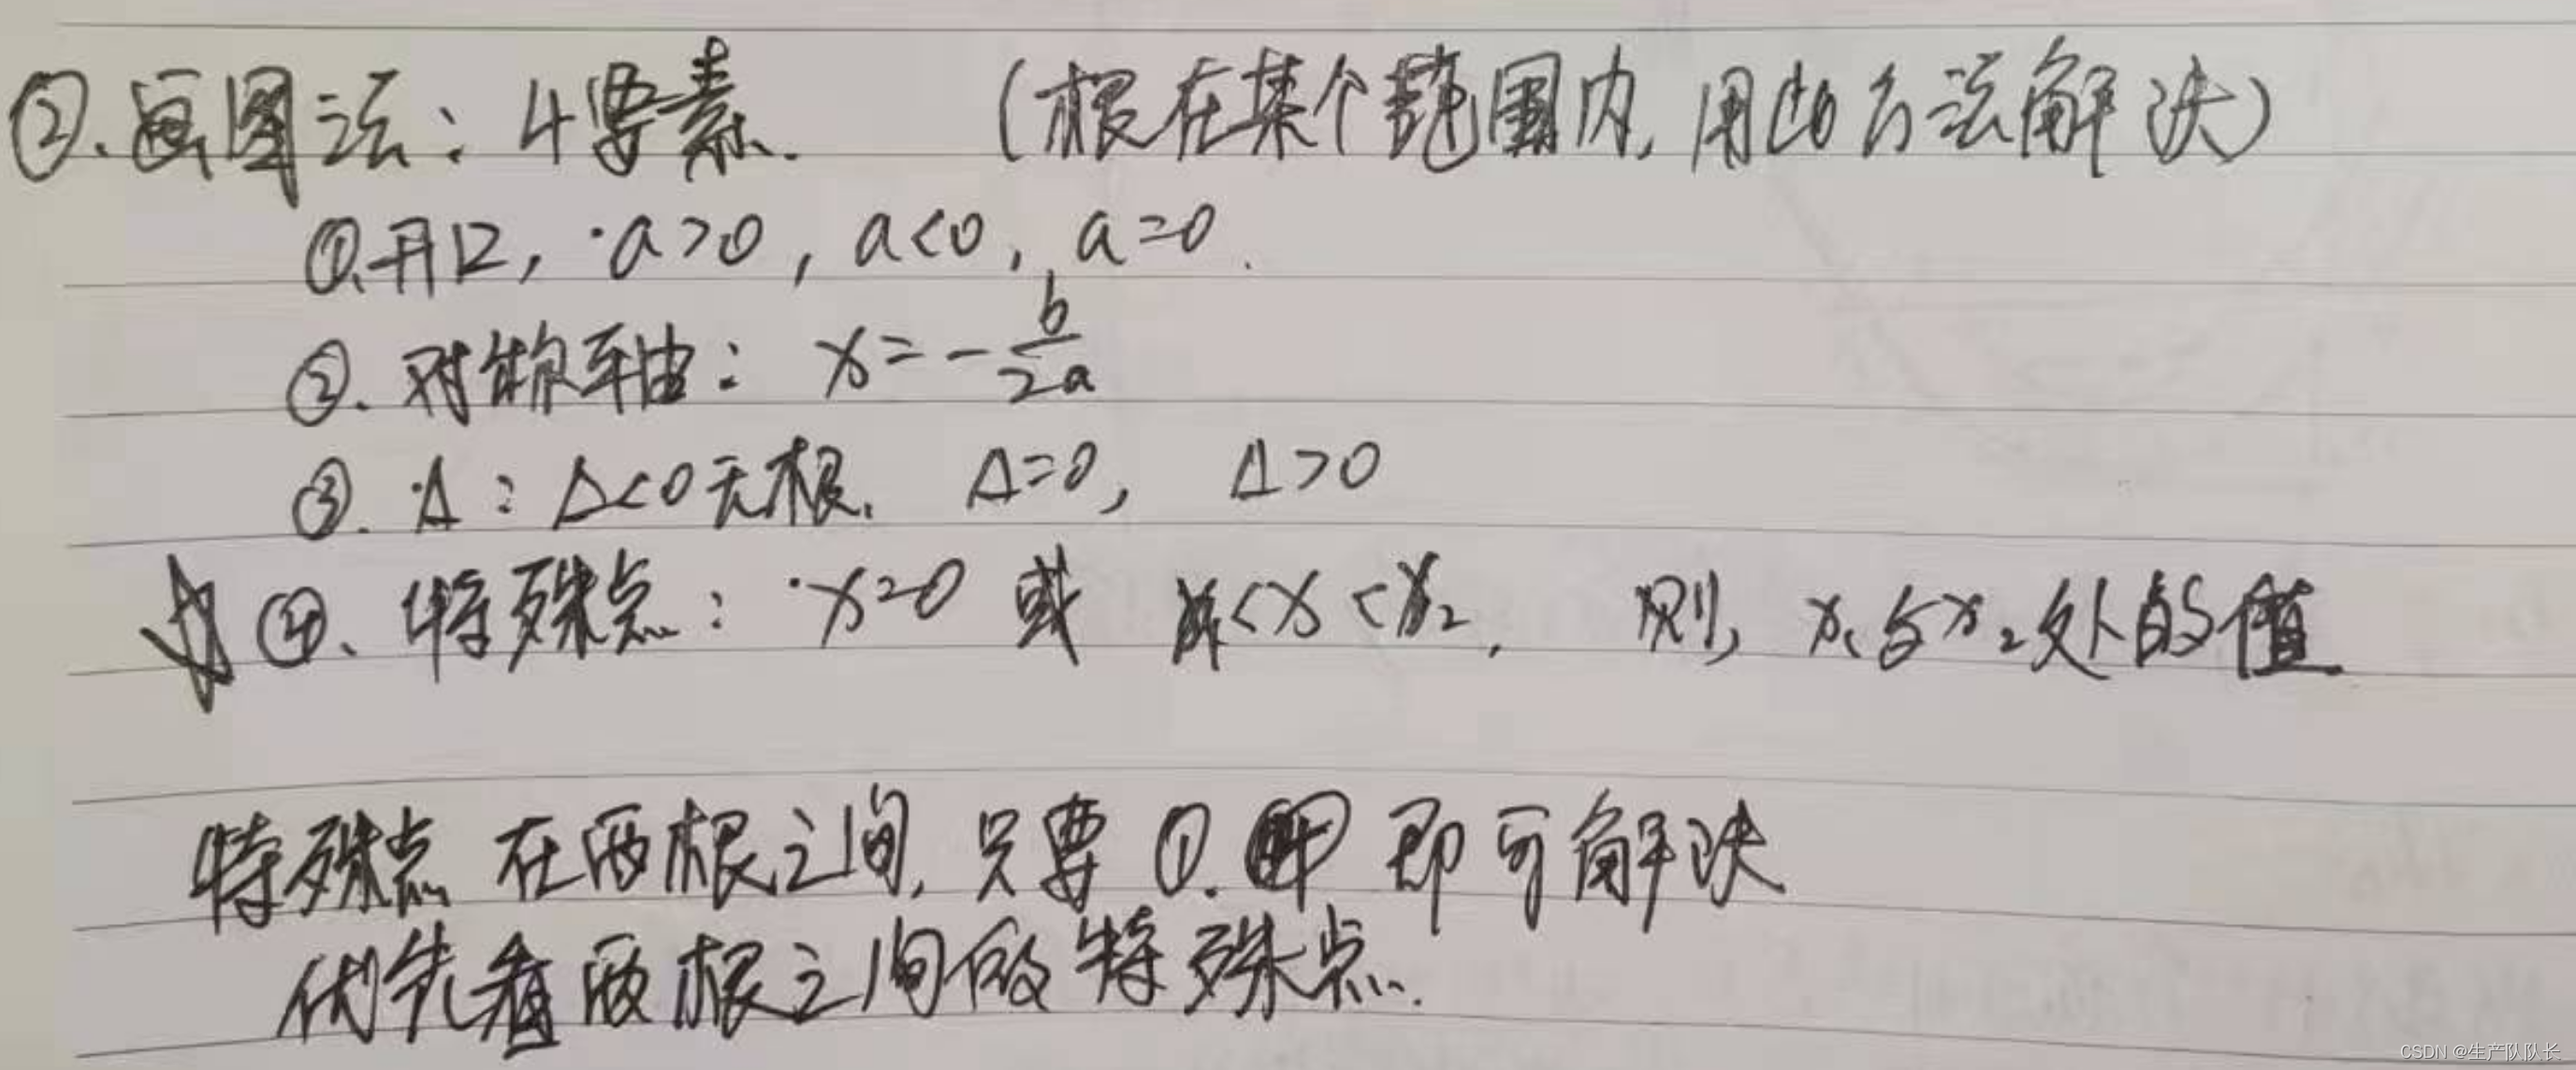 ②.画图法：4要素.（根在某个范围内,用此方法解决）
①.开口，a>0，a<0，a=0.
②.对称轴：x=-b/2a
③.Δ：Δ<0无根.Δ=0，Δ>0
☆④、特殊点：x=0 或 x₁<x<x₂，则，x₁与x₂处的值
特殊点在两根之间,只要①.④即可解决
优先看两根之间的特殊点.
CSDN @生产队队长